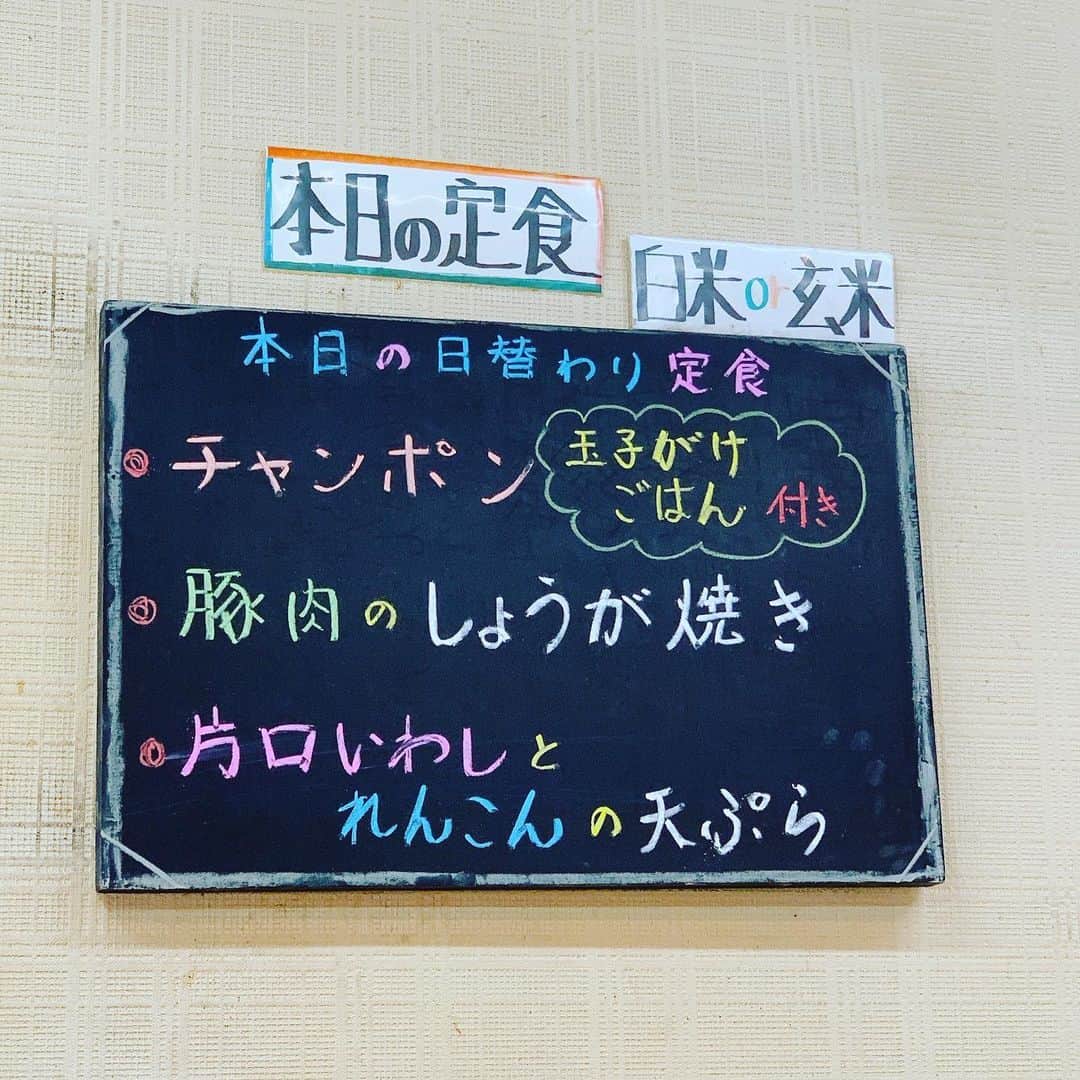 本日の定食
白米or玄米
本日の日替わり定食
チャンポン
玉子がけ
ごはん 付き
豚肉のしょうが焼き
片口いわしと
れんこんの天ぷら